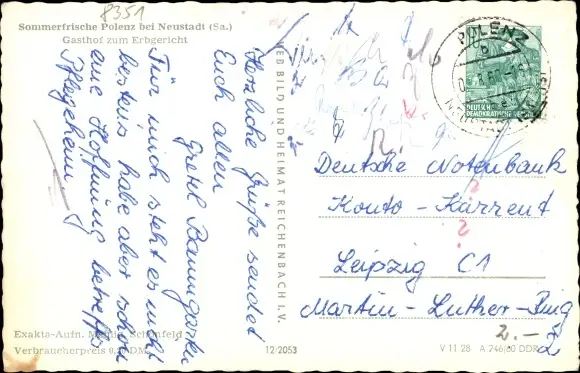 8351
Sommerfrische Polenz bei Neustadt (Sa.)
Gasthof zum Erbgericht
Herzliche Grüße sendet
Euch allen
Gretel Baumgarten
Für mich steht es nicht
bestens habe aber schon
eine Hoffnung betreffs
Pflegeheim
VEB BILD UND HEIMAT REICHENBACH I. V.
POLENZ
b
DEUTSCHE
DEMOKRATISCHE REPUBLIK
Deutsche Notenbank
Konto-Karrent
Leipzig C1
Martin-Luther-Ring
2.-
Exakta-Aufn.
Verbraucherpreis
12/2053
V 11 28 A 246/60 DDR